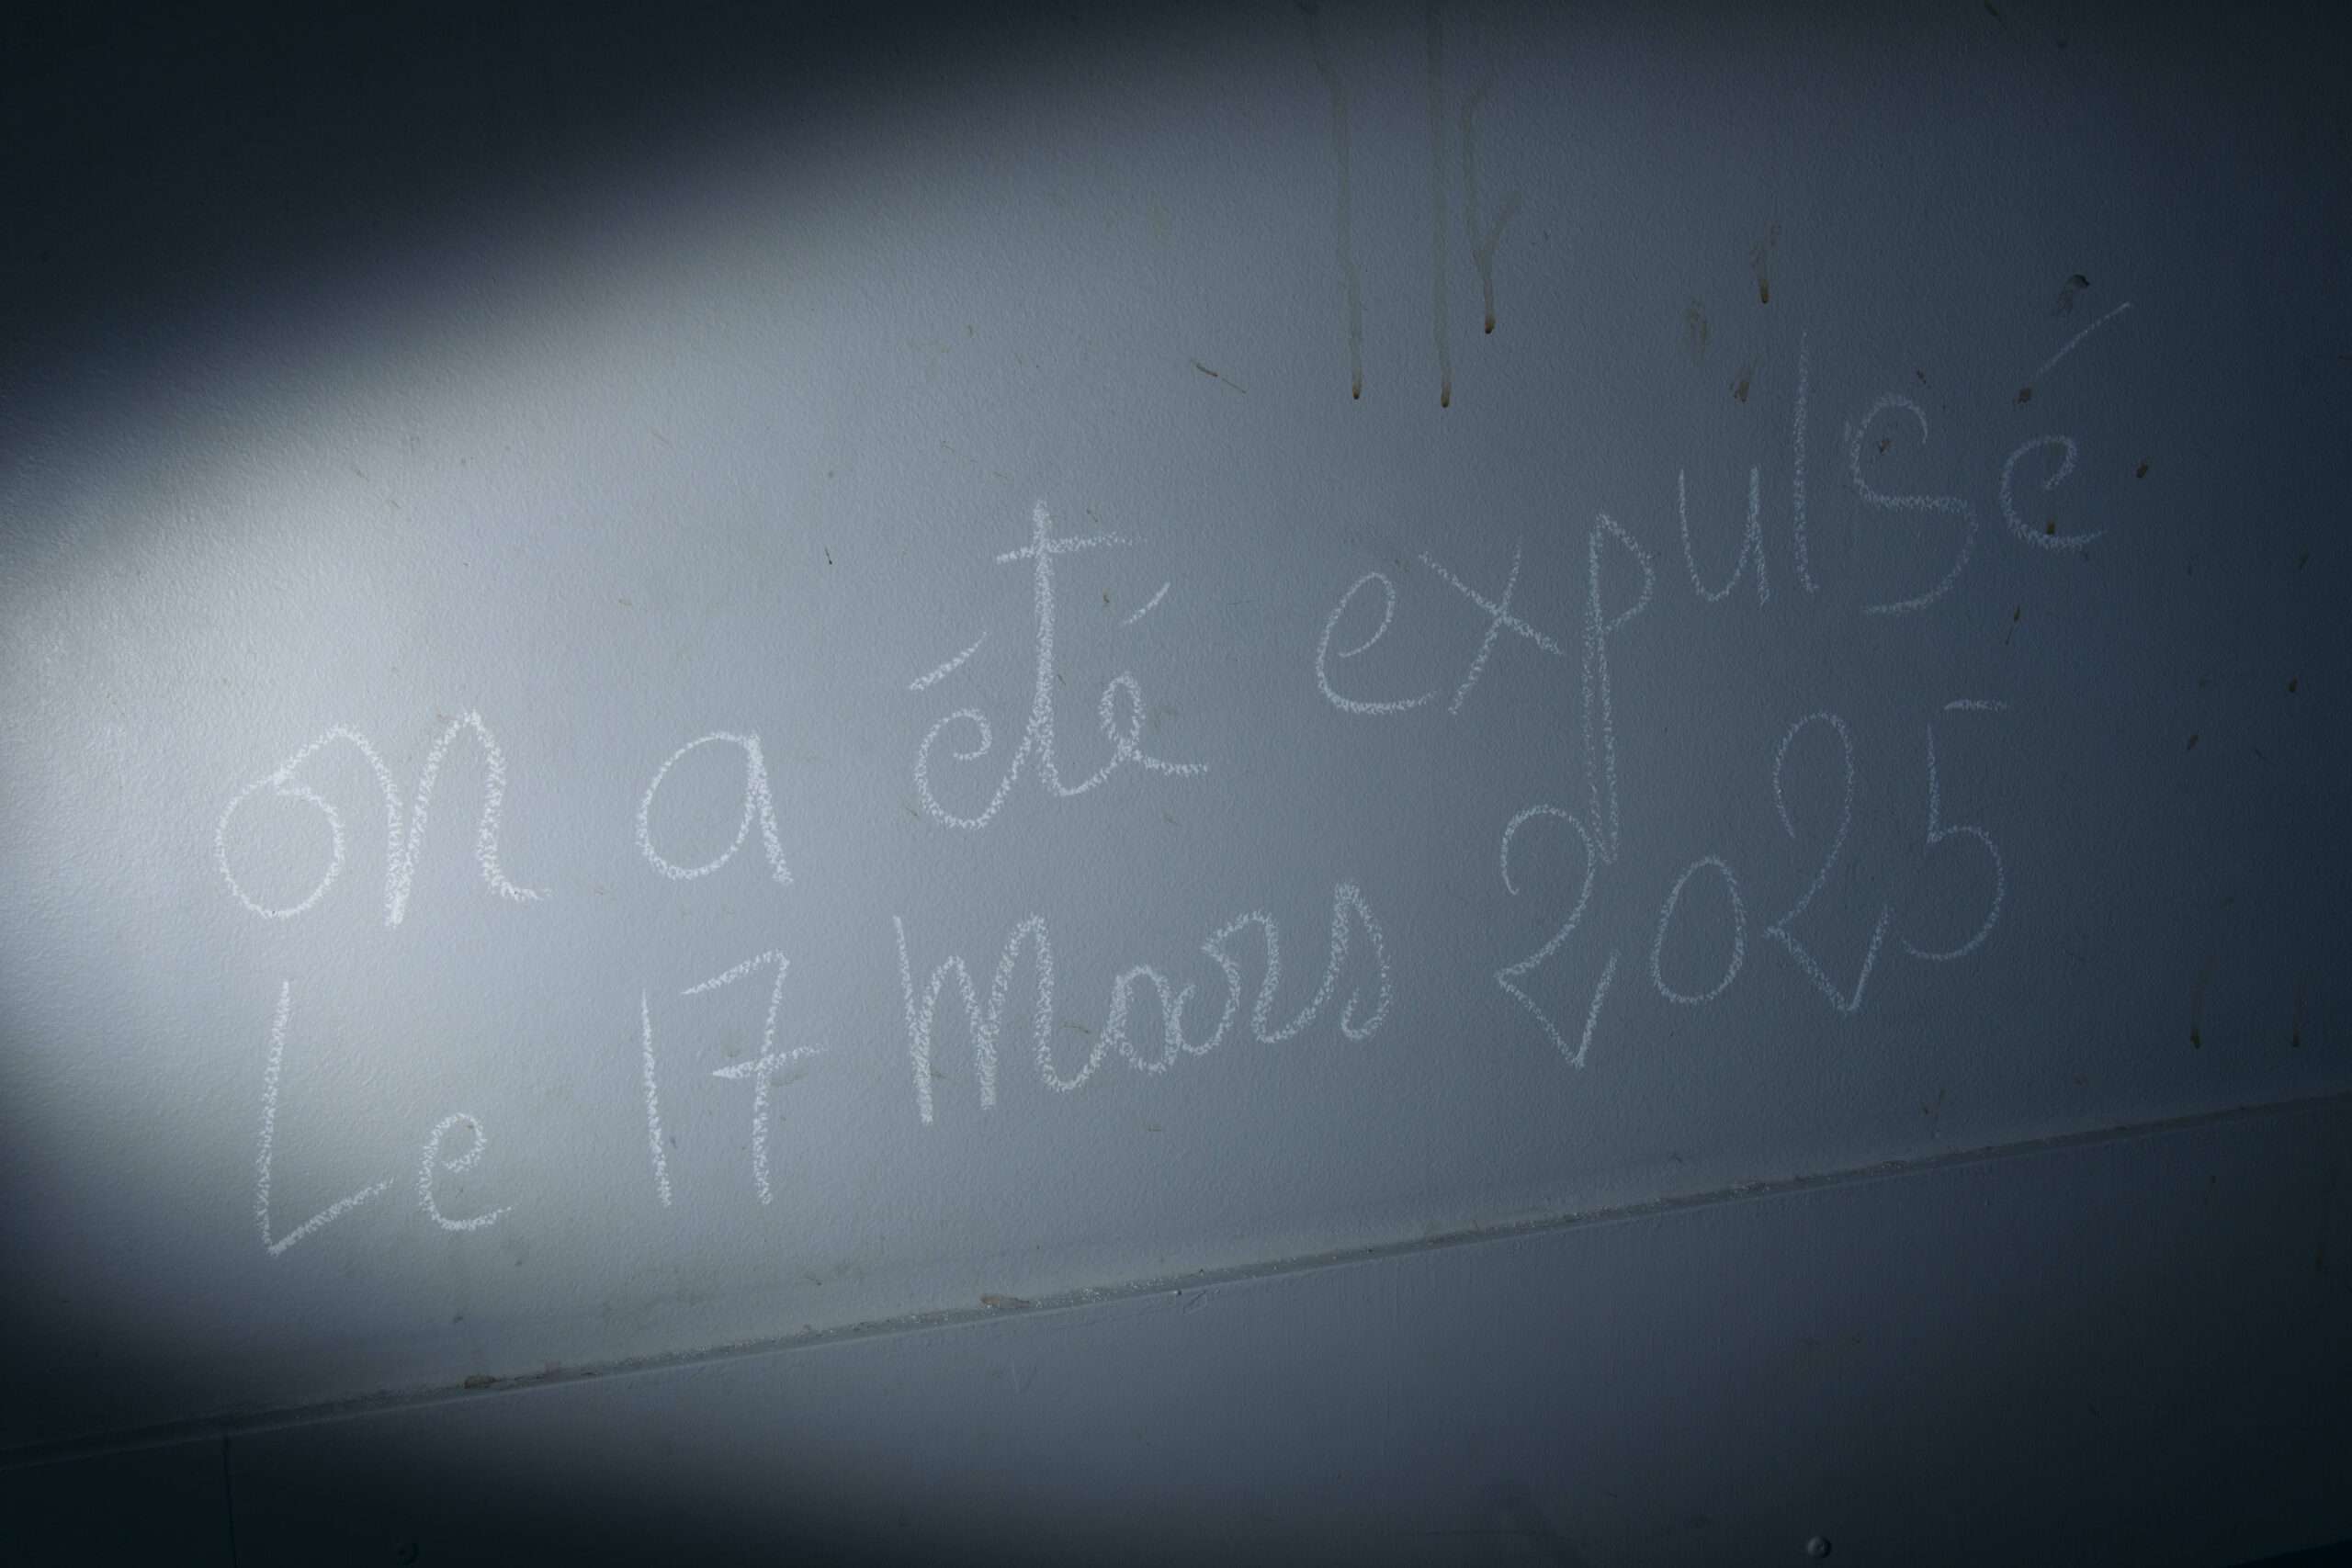 on a été expulsé
Le 17 Mars 2025